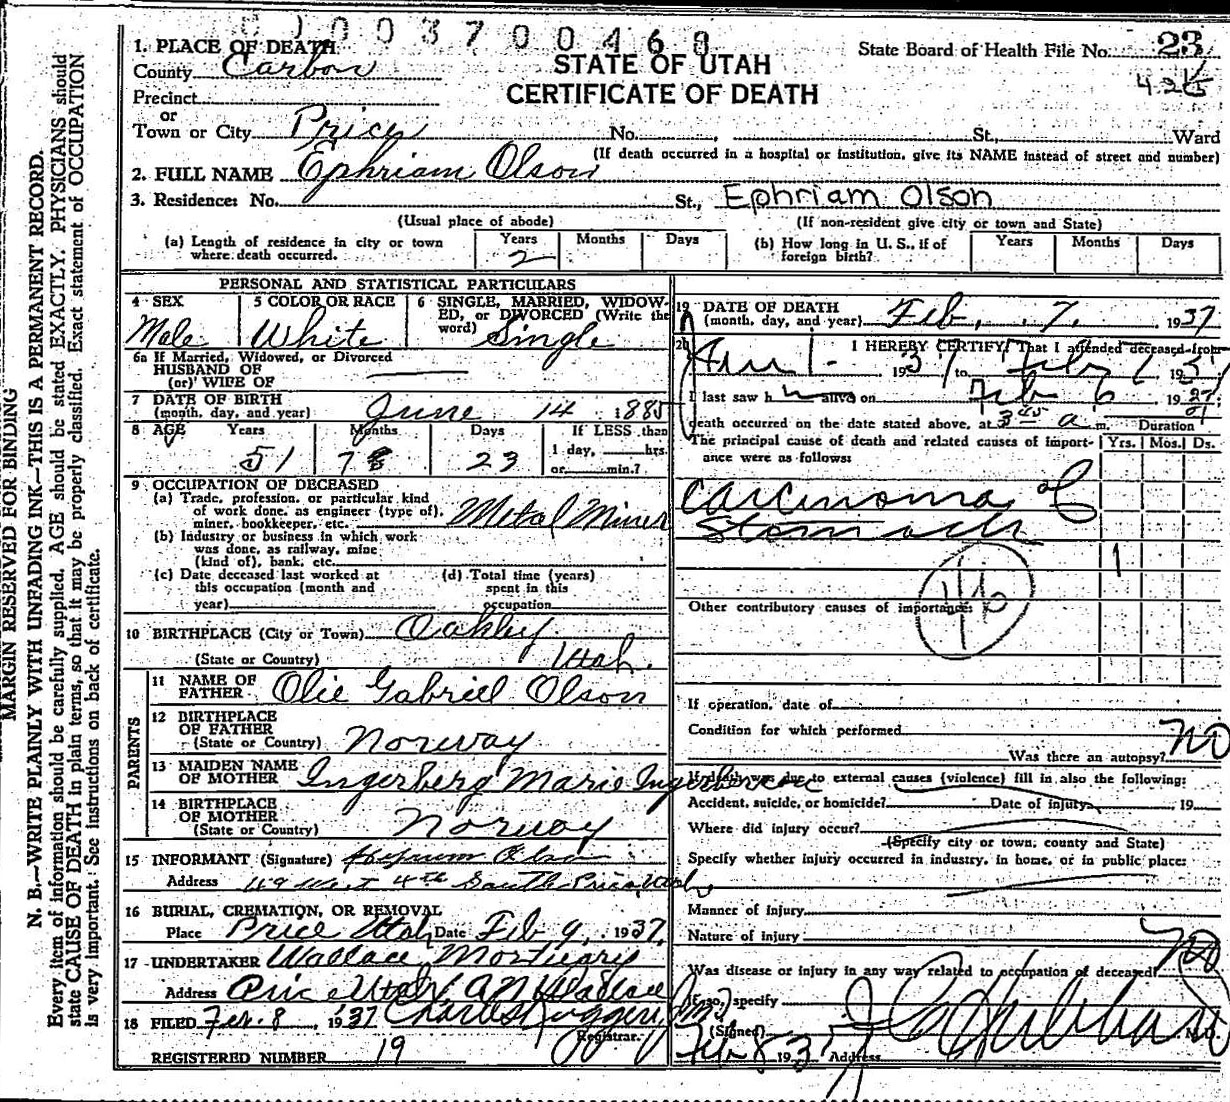 0100370 0468
1. PLACE OF DEATH
State Board of Health File No. 23
County Carbon
STATE OF UTAH
42
Precinct
CERTIFICATE OF DEATH
or
Town or City Price No. , St., Ward
(If death occurred in a hospital or institution, give its NAME instead of street and number)
2. FULL NAME Ephriam Olson
3. Residence: No. St., Ephriam Olson
(Usual place of abode) (If non-resident give city or town and State)
(a) Length of residence in city or town where death occurred. Years 2 Months Days
(b) How long in U. S., if of foreign birth? Years Months Days
PERSONAL AND STATISTICAL PARTICULARS
4 SEX Male
5 COLOR OR RACE White
6 SINGLE, MARRIED, WIDOWED, or DIVORCED (Write the word) Single
6a If Married, Widowed, or Divorced
HUSBAND OF
(or) WIFE OF
7 DATE OF BIRTH
(month, day, and year) June 14 1885
8 AGE Years 51 Months 7 Days 23
If LESS than
1 day, hrs.
or min.?
9 OCCUPATION OF DECEASED
(a) Trade, profession, or particular kind
of work done, as engineer (type of),
miner, bookkeeper, etc. Metal Miner
(b) Industry or business in which work
was done, as railway, mine
(kind of), bank, etc.
(c) Date deceased last worked at
this occupation (month and
year)
(d) Total time (years)
spent in this
occupation
10 BIRTHPLACE (City or Town) Oakley
(State or Country) Utah.
PARENTS
11 NAME OF
FATHER Olie Gabriel Olson
12 BIRTHPLACE
OF FATHER
(State or Country) Norway
13 MAIDEN NAME
OF MOTHER Ingerberg Marie
14 BIRTHPLACE
OF MOTHER
(State or Country) Norway
15 INFORMANT (Signature) Hyrum Olson
Address West 4th South Price, Utah
16 BURIAL, CREMATION, OR REMOVAL
Place Price Utah Date Feb 9, 1937
17 UNDERTAKER Wallace Mortuary
Address Price Utah A N Wallace
18 FILED Feb. 8, 1937 Charles Ruggeri
Registrar.
REGISTERED NUMBER 19
19 DATE OF DEATH
(month, day, and year) Feb. 7, 1937
20 I HEREBY CERTIFY, That I attended deceased from
1 1937 to Feb 7 1937
I last saw h alive on Feb 6 1937
death occurred on the date stated above, at 3 45 a m. Duration
The principal cause of death and related causes of importance were as follows: Yrs. Mos. Ds.
Carcinoma of
Stomach
1
Other contributory causes of importance:
If operation, date of
Condition for which performed
Was there an autopsy? NO
If death was due to external causes (violence) fill in also the following:
Accident, suicide, or homicide? Date of injury , 19
Where did injury occur?
(Specify city or town, county and State)
Specify whether injury occurred in industry, in home, or in public place:
Manner of injury
Nature of injury
Was disease or injury in any way related to occupation of deceased? NO
If so, specify
(Signed) M.D.
Feb 8 1937 Address
MARGIN RESERVED FOR BINDING
N. B.—WRITE PLAINLY WITH UNFADING INK—THIS IS A PERMANENT RECORD.
Every item of information should be carefully supplied. AGE should be stated EXACTLY. PHYSICIANS should
state CAUSE OF DEATH in plain terms, so that it may be properly classified. Exact statement of OCCUPATION
is very important. See instructions on back of certificate.